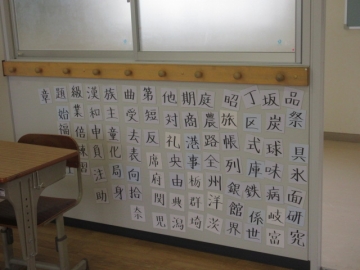 品祭具氷面研究
坂炭球味病岐富
丁区式庫鉄係世
昭旅帳列銀館界
庭農路全州洋
期商港事栃群埼
他対礼央由典潟
第短反席府関児
曲受去表向拾奈
族主童化局身
漢和申負注助
級業倍練習
題始福
章